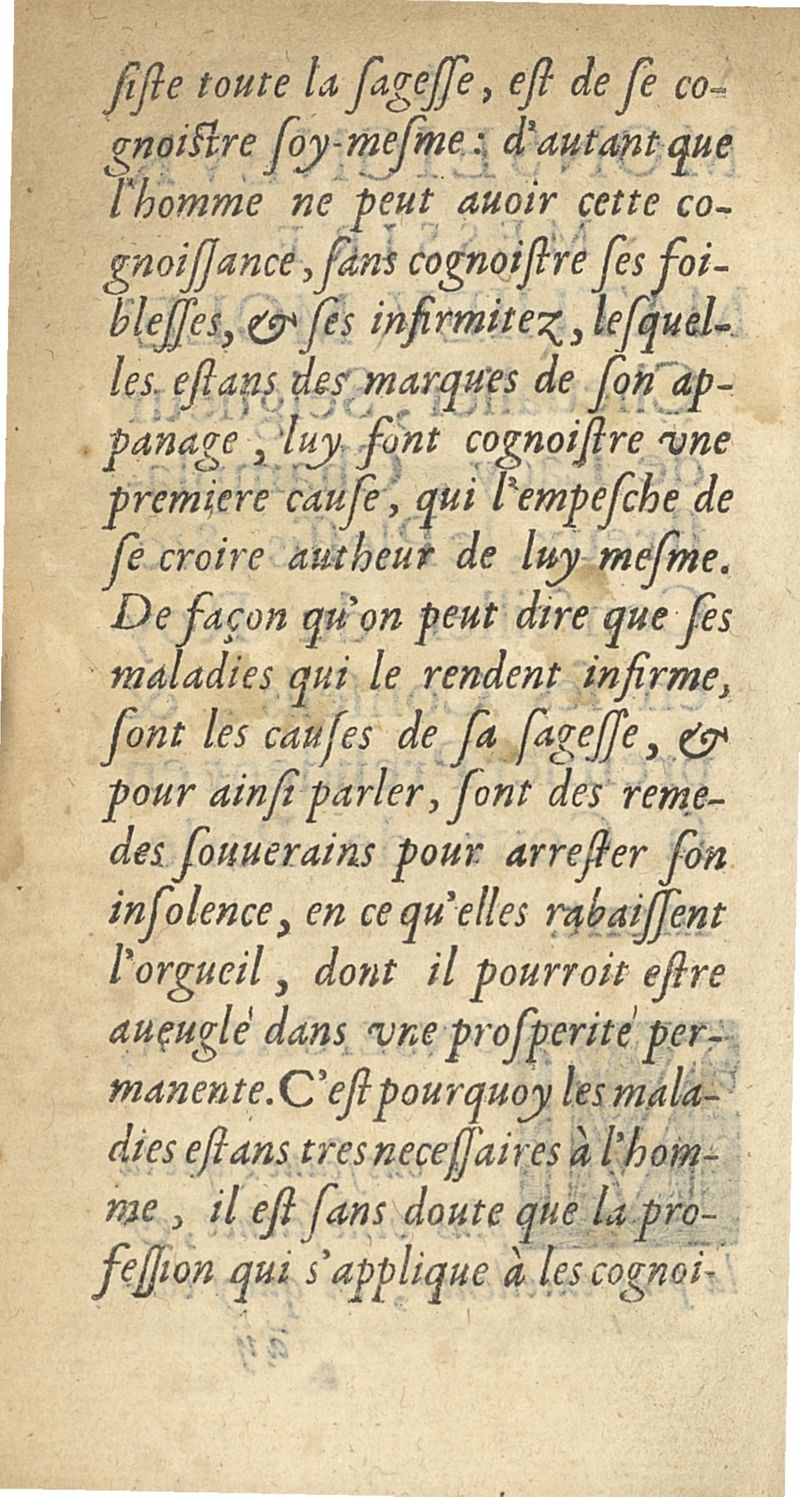 ſiſte toute la ſageſſe, eſt de ſe co-
gnoiſtre ſoy-meſme : d'autant que
l'homme ne peut auoir cette co-
gnoiſſance, ſans cognoiſtre ſes foi-
bleſſes, & ſes infirmitez, leſquel-
les eſtans des marques de ſon ap-
panage, luy font cognoiſtre vne
premiere cauſe, qui l'empeſche de
ſe croire autheur de luy meſme.
De façon qu'on peut dire que ſes
maladies qui le rendent infirme,
ſont les cauſes de ſa ſageſſe, &
pour ainſi parler, ſont des reme-
des ſouuerains pour arreſter ſon
inſolence, en ce qu'elles rabaiſſent
l'orgueil, dont il pourroit eſtre
aueuglé dans vne proſperité per-
manente. C'eſt pourquoy les mala-
dies eſtans tres neceſſaires à l'hom-
me, il eſt ſans doute que la pro-
feſſion qui s'applique à les cognoi-